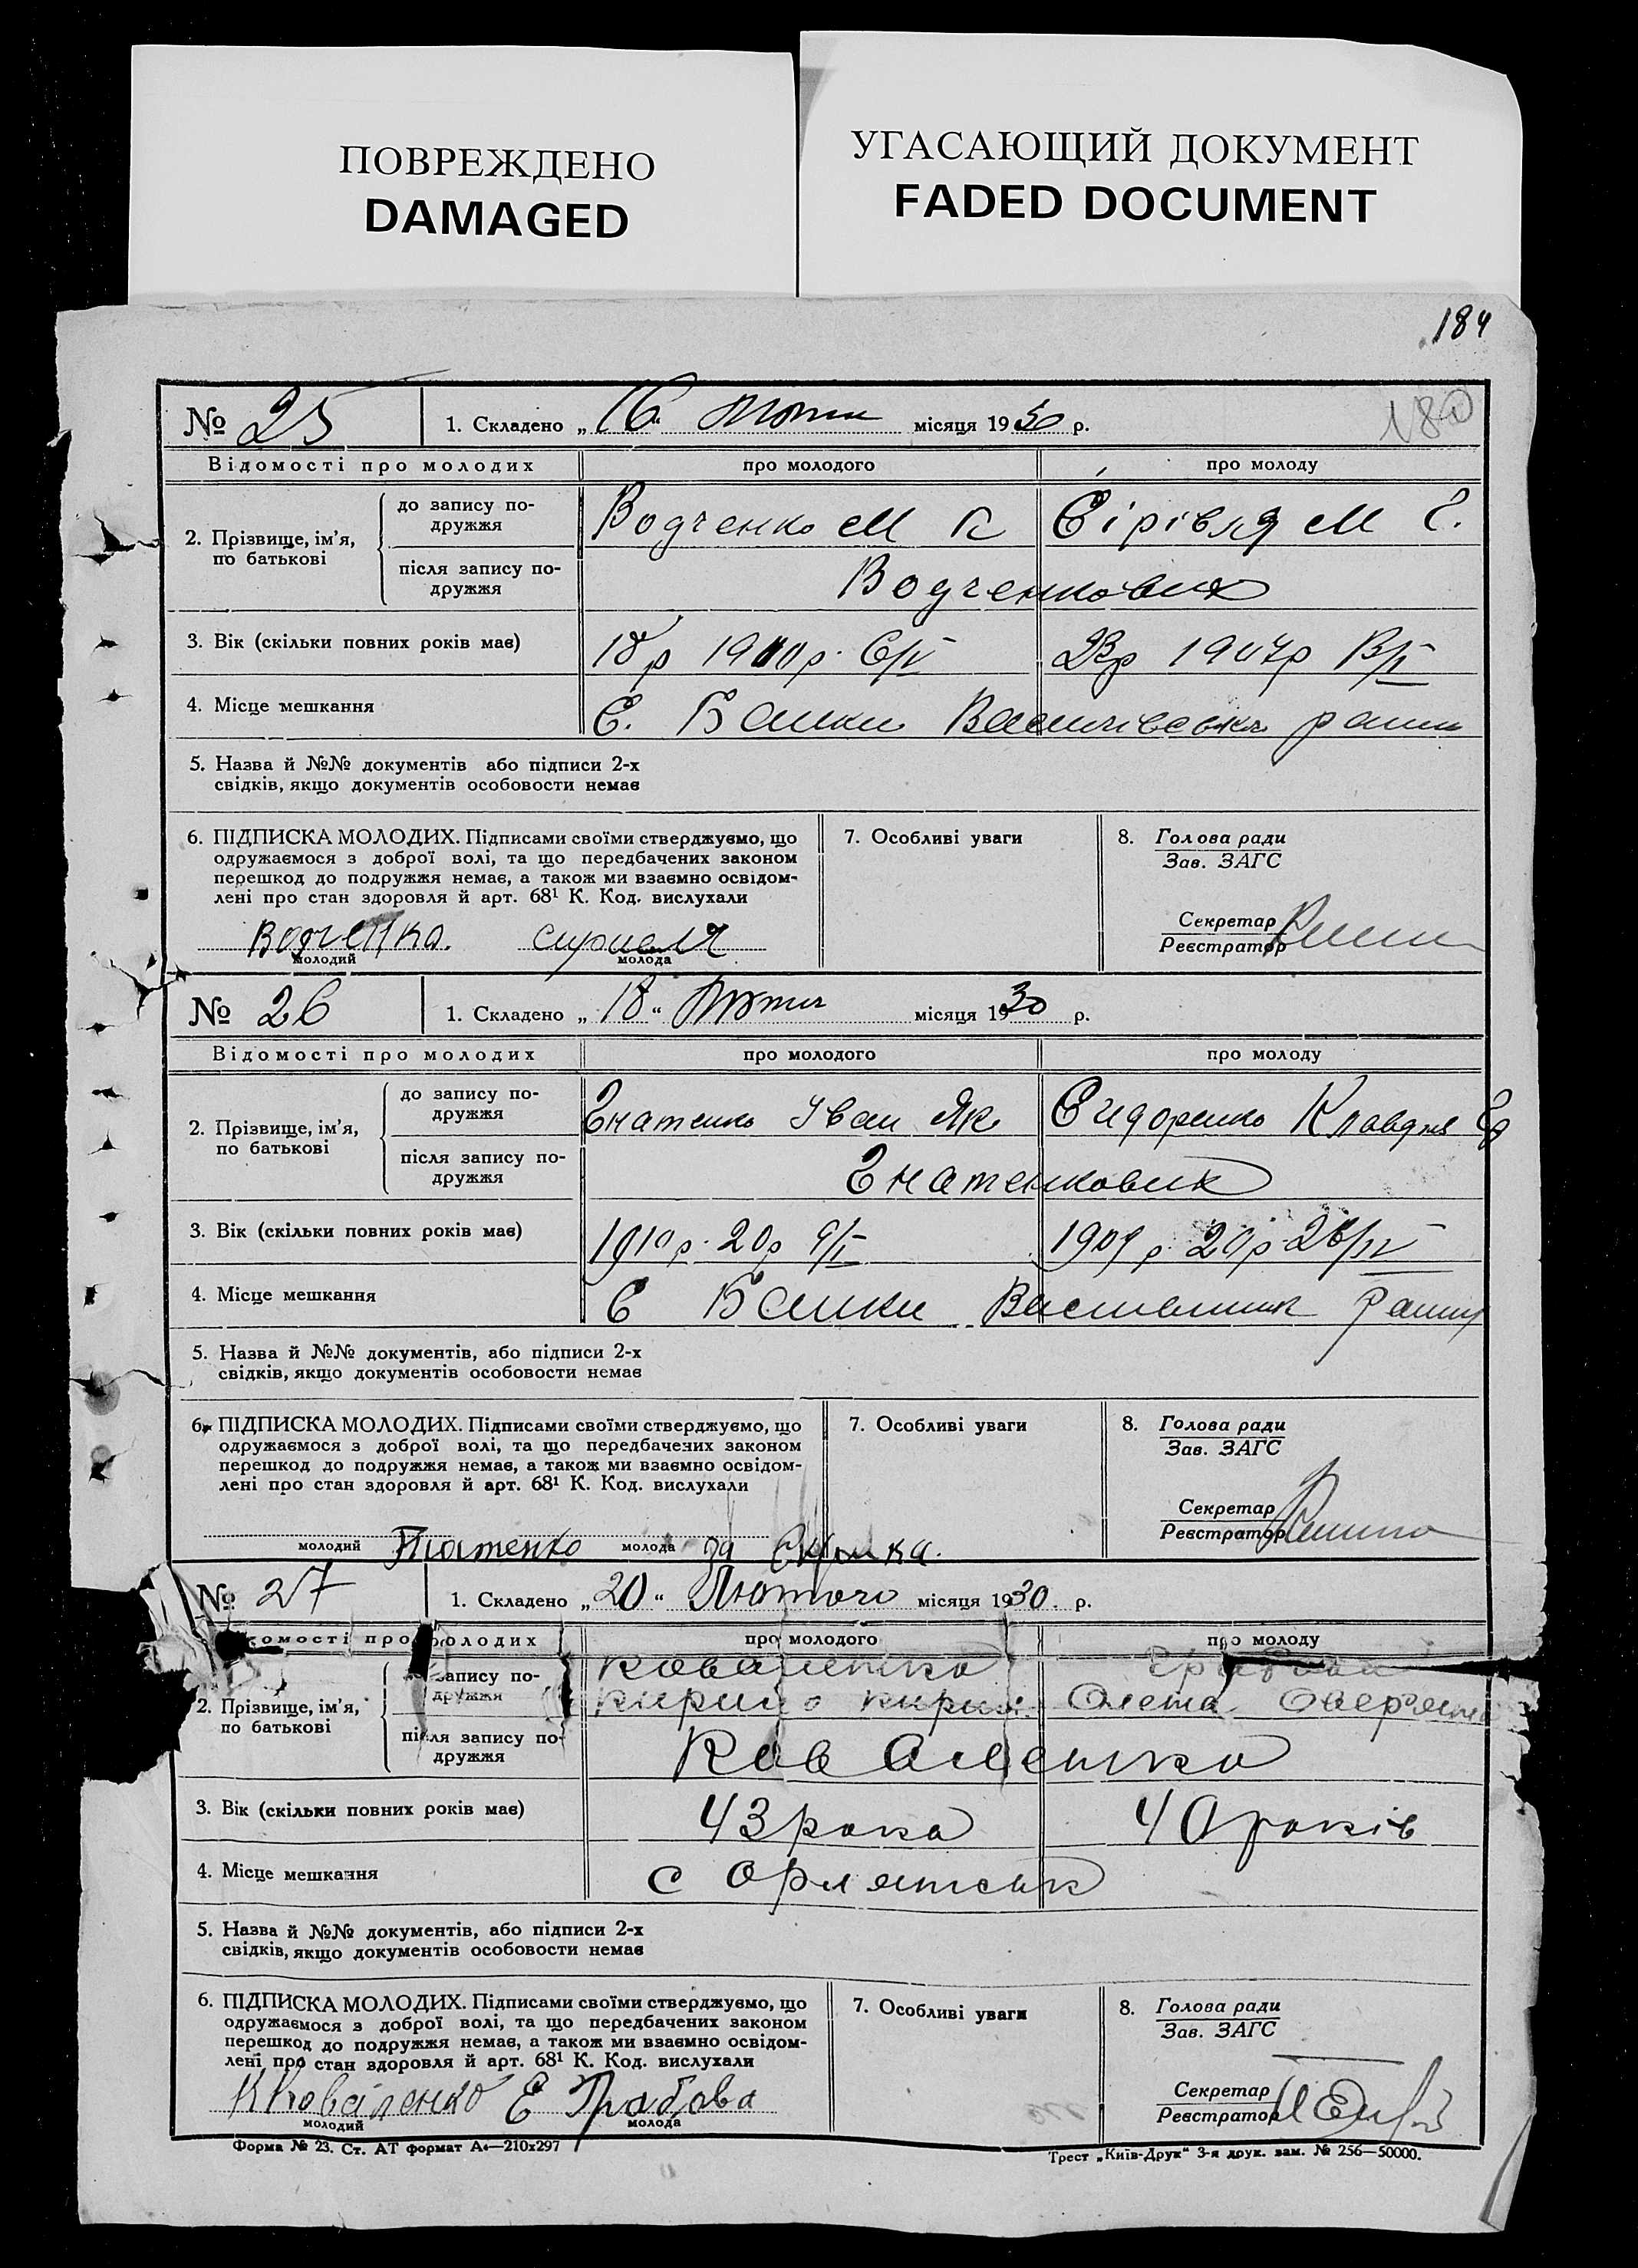 ПОВРЕЖДЕНО
DAMAGED
УГАСАЮЩИЙ ДОКУМЕНТ
FADED DOCUMENT
184
180
№ 25 1. Складено „16“ місяця 1930 р.
Відомості про молодих про молодого про молоду
2. Прізвище, ім'я, по батькові
до запису по-
дружжя
Водченко М К Сірівля М Є.
після запису по-
дружжя
Водченкових
3. Вік (скільки повних років має) 18р 23р 1907р
4. Місце мешкання С. Балки Василівськ. району
5. Назва й №№ документів або підписи 2-х
свідків, якщо документів особовости немає
6. ПІДПИСКА МОЛОДИХ. Підписами своїми стверджуємо, що
одружаємося з доброї волі, та що передбачених законом
перешкод до подружжя немає, а також ми взаємно освідом-
лені про стан здоровля й арт. 68¹ К. Код. вислухали
Водченко.
молодий молода
7. Особливі уваги
8. Голова ради
Зав. ЗАГС
Секретар
Реєстратор
№ 26 1. Складено „18“ місяця 1930 р.
Відомості про молодих про молодого про молоду
2. Прізвище, ім'я,
по батькові
до запису по-
дружжя
Гнатенко Іван Як Сидоренко Клавдия
після запису по-
дружжя
Гнатенкових
3. Вік (скільки повних років має) 1910 р. 20р 1909 р. 20р 26/IV
4. Місце мешкання С Балки району
5. Назва й №№ документів, або підписи 2-х
свідків, якщо документів особовости немає
6. ПІДПИСКА МОЛОДИХ. Підписами своїми стверджуємо, що
одружаємося з доброї волі, та що передбачених законом
перешкод до подружжя немає, а також ми взаємно освідом-
лені про стан здоровля й арт. 68¹ К. Код. вислухали
молодий молода за
7. Особливі уваги
8. Голова ради
Зав. ЗАГС
Секретар
Реєстратор
№ 27 1. Складено „20“ Лютого місяця 1930. р.
омості про молодих про молодого про молоду
2. Прізвище, ім'я,
по батькові
запису по-
дружжя
Коваленко
Кирило Кирил.
після запису по-
дружжя
Коваленко
3. Вік (скільки повних років має) 43 рока 40 років
4. Місце мешкання с Орлянськ
5. Назва й №№ документів, або підписи 2-х
свідків, якщо документів особовости немає
6. ПІДПИСКА МОЛОДИХ. Підписами своїми стверджуємо, що
одружаємося з доброї волі, та що передбачених законом
перешкод до подружжя немає, а також ми взаємно освідом-
лені про стан здоровля й арт. 68¹ К. Код. вислухали
К Коваленко Е Грабова
молодий молода
7. Особливі уваги
8. Голова ради
Зав. ЗАГС
Секретар
Реєстратор
Форма № 23. Ст. АТ формат А₄—210х297
Трест „Київ-Друк“ 3-я друк. зам. № 256—50000.